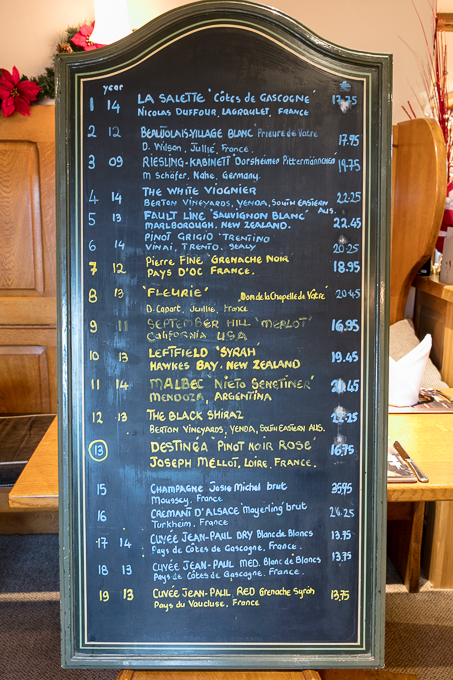 year
1 14 LA SALETTE 'Côtes de GASCOGNE'
NICOLAS DUFFOUR, LAGRAULET, FRANCE
2 12 BEAUJOLAIS-VILLAGE BLANC Prieuré de Vatre 17.95
D. Wilson, Jullié, France.
3 09 RIESLING-KABINETT 'Dorsheimer Pittermännchen 19.75
M Schäfer, Nahe, Germany.
4 14 THE WHITE VIOGNIER 22.25
BERTON VINEYARDS, YENDA, SOUTH EASTERN AUS.
5 13 FAULT LINE 'SAUVIGNON BLANC' 22.45
MARLBOROUGH, NEW ZEALAND.
6 14 PINOT GRIGIO 'TRENTINO 20.25
VINAI, TRENTO,
7 12 PIERRE FINE 'GRENACHE NOIR 18.95
PAYS D'OC FRANCE.
8 13 "FLEURIE" Dom de la Chapelle de Vatre' 20.45
D. Capart, Juillie, France
9 11 SEPTEMBER HILL 'MERLOT' 16.95
CALIFORNIA USA
10 13 LEFTFIELD 'SYRAH' 19.45
HAWKES BAY, NEW ZEALAND
11 14 MALBEC 'NIETO SENETINER'
MENDOZA, ARGENTINA
12 13 THE BLACK SHIRAZ
BERTON VINEYARDS, YENDA, SOUTH EASTERN AUS.
13 DESTINÉA 'PINOT NOIR ROSE' 16.75
JOSEPH MELLOT, LOIRE, FRANCE.
15 CHAMPAGNE Josie Michel brut 35.95
Moussey, France
16 CREMANT D'ALSACE 'Mayerling' brut
Turkheim, France
17 14 CUVÉE JEAN-PAUL DRY Blanc de Blancs 13.75
Pays de Côtes de Gascogne, France.
18 13 CUVÉE JEAN-PAUL MED. Blanc de Blancs 13.75
Pays de Côtes de Gascogne. France.
19 13 CUVÉE JEAN-PAUL RED Grenache Syrah 13.75
Pays du Vaucluse, France